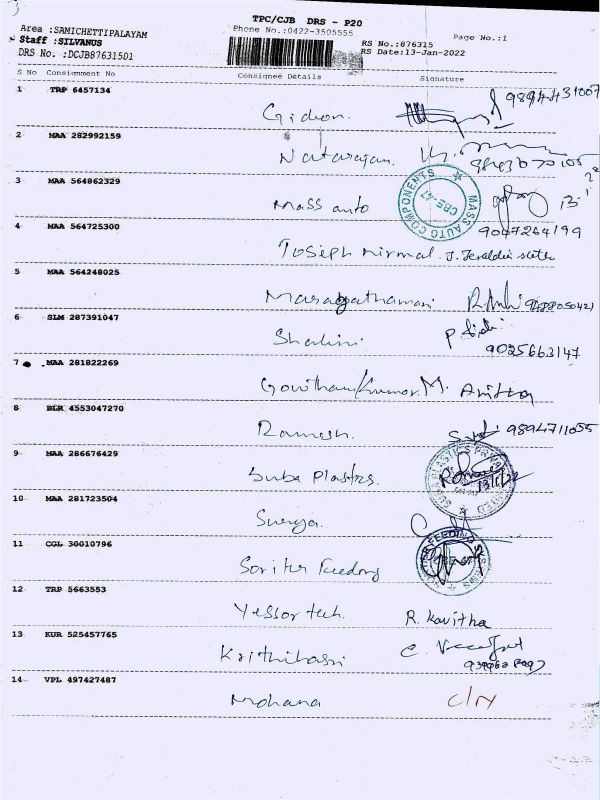 TPC/CJB DRS - P20
Area :SAMICHETTIPALAYAM
Phone No.:0422-3505555
Page No.:1
Staff :SILVANUS
RS No.:876315
DRS No. :DCJB87631501
RS Date:13-Jan-2022
S No Consignment No Consignee Details Signature
1 TRP 6457134
Gideon.
2 MAA 282992159
Natarajan.
3 MAA 564862329
Mass auto
MASS AUTO COMPONENTS
CBE-47
4 MAA 564725300
9047264199
Joseph nirmal. J. Jeraldin
5 MAA 564248025
6 SLM 287391047
Shalini
9025663147
7 MAA 281822269
Gowtham Kumar.M. Anitha
8 BLR 4553047270
Ramesh. 9894711055
9 MAA 286676429
Suba Plastics.
10 MAA 281723504
Surya.
11 CGL 30010796
Feeding
FEEDING SYSTEMS
12 TRP 5663553
Yessor tech. R. Kavitha
13 KUR 525457765
14 VPL 497427487
Mohana